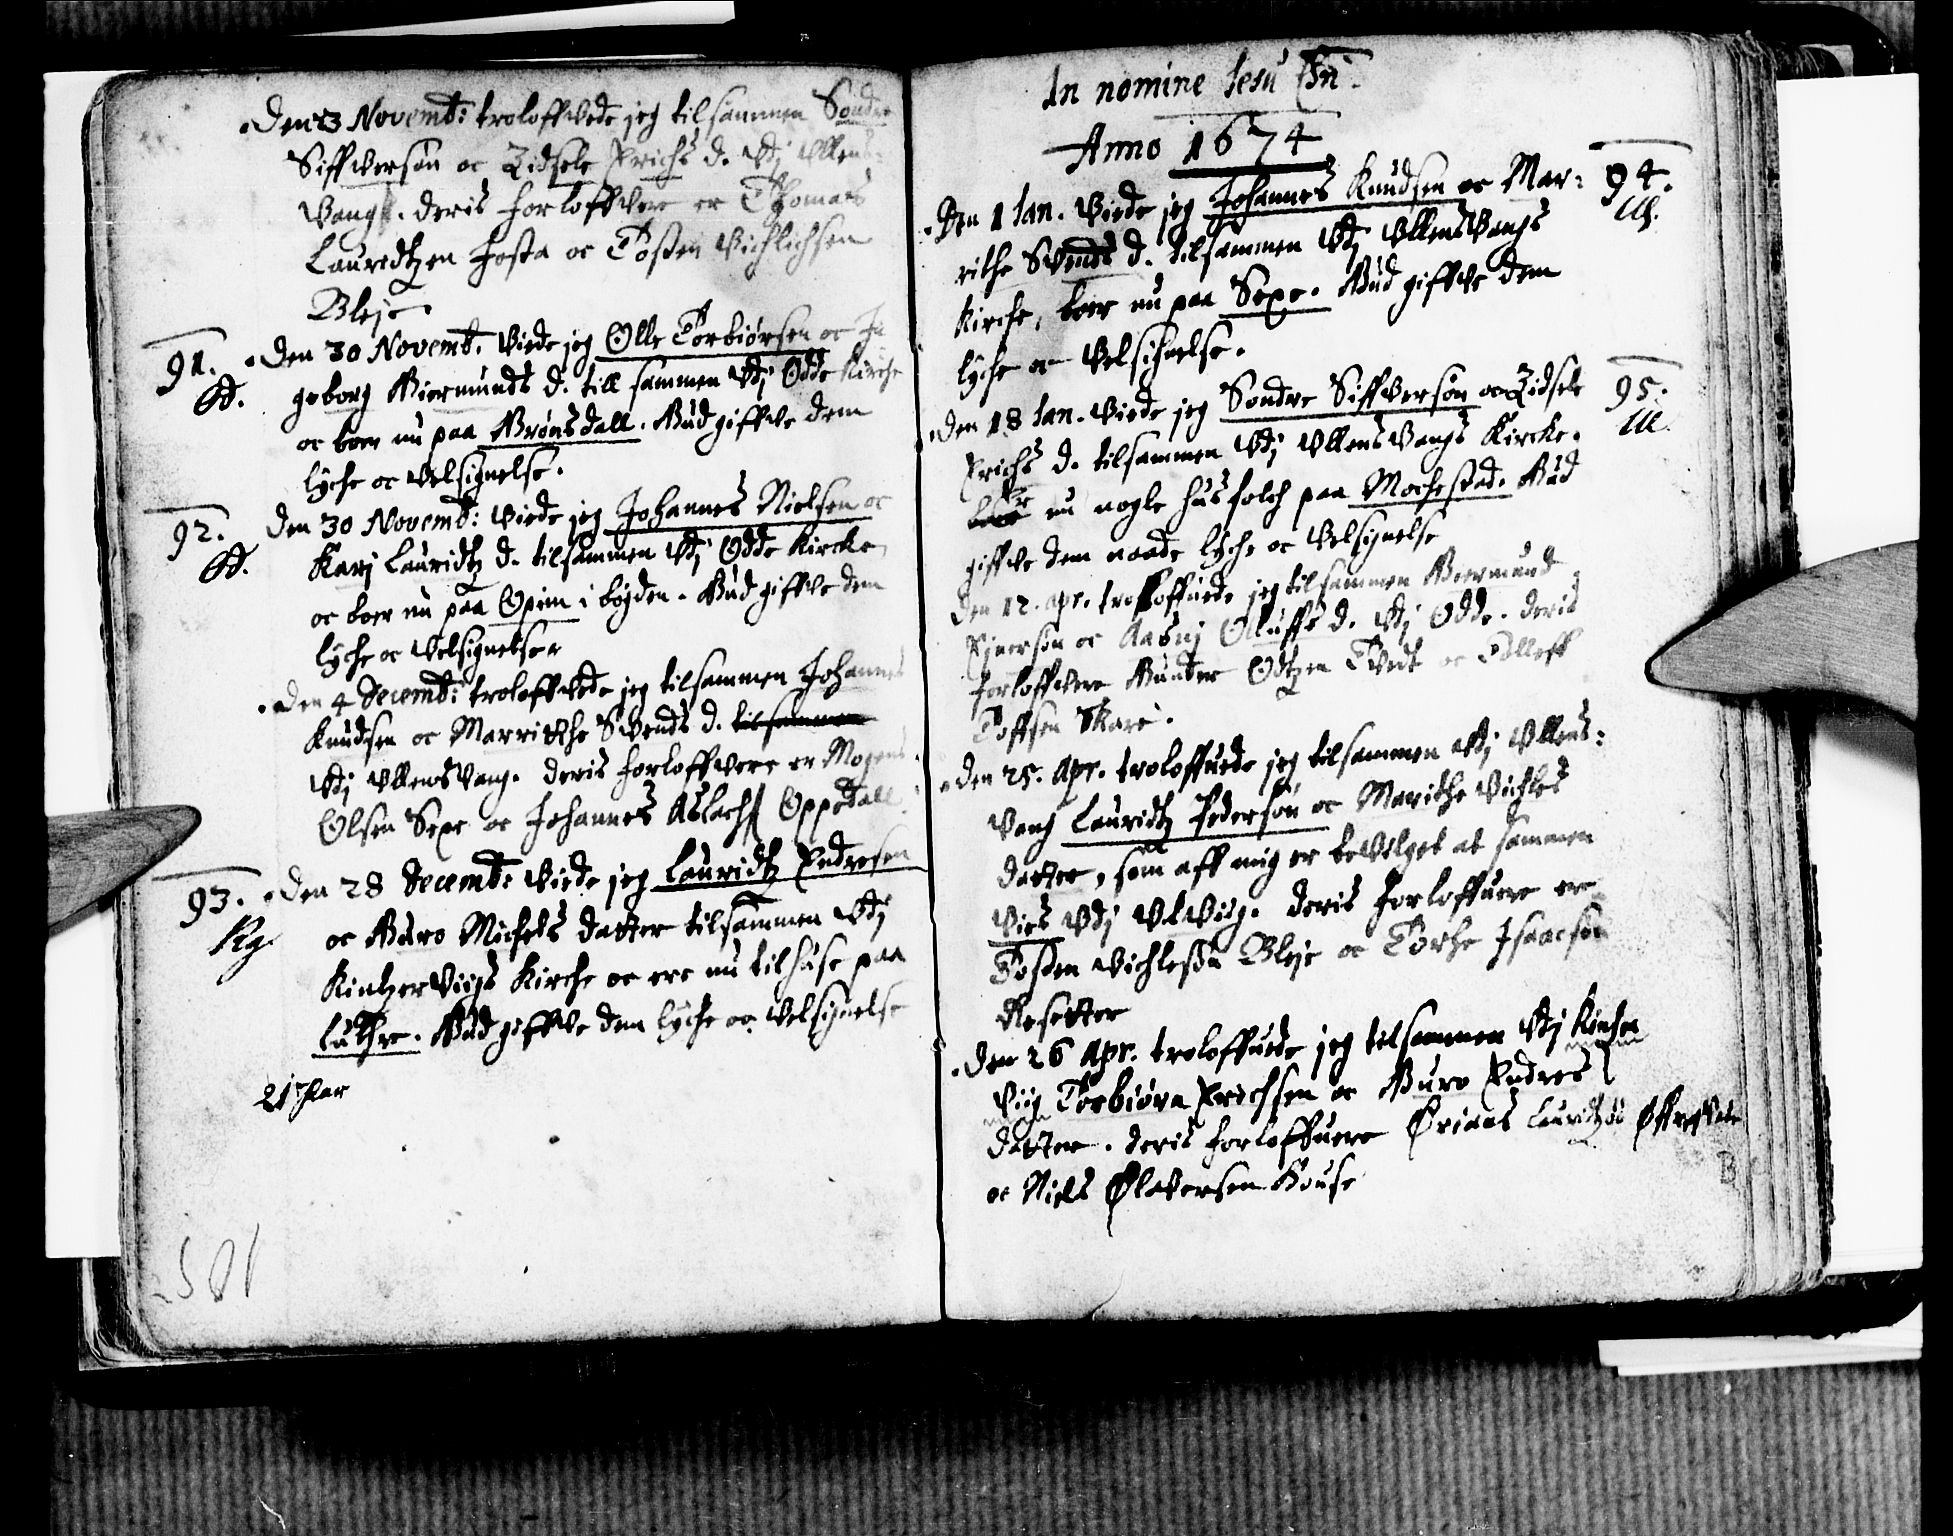 Den 23 Novemb: troloffvede jeg tilsammen Sondre
Siffverson oc Zidsele Erichs d. vdj Ullens=
Vang. deris forloffvere er Thomas
Lauredtzen Hosta oc Tosten Vichlichsen
Bleje.
91. Den 30 Novemb. Viede jeg Olle Torbiørsen oc In
Od. geborg Giermunds d. till sammen vdj Odde Kirche
oc boer nu paa Brønsdall. Gud giffve dem
lyche oc velsignelse.
92. Den 30 Novemb: viede jeg Johannes Nielsen oc
Od. Karj Lauridtz d. tilsammen vdj Odde Kircke
oc boer nu paa Opim i bøgden. Gud giffve dem
lyche oc velsignelse
Den 4 Decemb: troloffvede jeg tilsammen Johannes
Knudsen oc Marrithe Svends d. tilsammen
vdj Ullensvang. deris forloffvere er Mogens
Olsen Sexe oc Johannes Aslachs Oppedall
93. Den 28 Decemb: Viede jeg Lauridtz Endresen
Kg. oc Guro Michels datter tilsammen vdj
Kintzerviigs Kirche oc ere nu tilhuse paa
Luthre. Gud giffve dem lyche oc velsignelse
21 Par
In nomine Jesu Chri.
Anno 1674
Den 1 Jan. Viede jeg Johannes Knudsen oc Mar= 94.
rithe Svends d. tilsammen vdj Ullensvangs Ull.
Kirche, boer nu paa Sexe. Gud giffve dem
lyche oc Velsignelse.
Den 18 Jan. viede jeg Sondre Siffverson oc Zidsele 95.
Erichs d. tilsammen vdj Ullensvangs Kircke. Ull.
boer er nu nogle husfolch paa Mochestad. Gud
giffve dem naade lyche oc Velsignelse
Den 12. apr. troloffuede jeg tilsammen Geermund
Ejnerson oc Aasnj Oluffs d. vdj Odde. deris
forloffvere Gunder Odtzen Tvedt oc Tolleff
Toffsen Skare.
Den 25. Apr. troloffuede jeg tilsammen vdj Ullens=
vang Lauridtz Pederson oc Marithe Vichles
datter, som aff mig er bevilget at sammen
Vies vdj Ulvig. deris forloffuere er
Tosten Vichlessen Bleje oc Torche Isaacsen
Resetter
Den 26 Apr. troloffuede jeg tilsammen vdj Kintzer
Viig Torbiørn Erichsen oc Guro Endres
datter. deris forloffuere Ørians Lauridtzen
oc Niels Olversen House